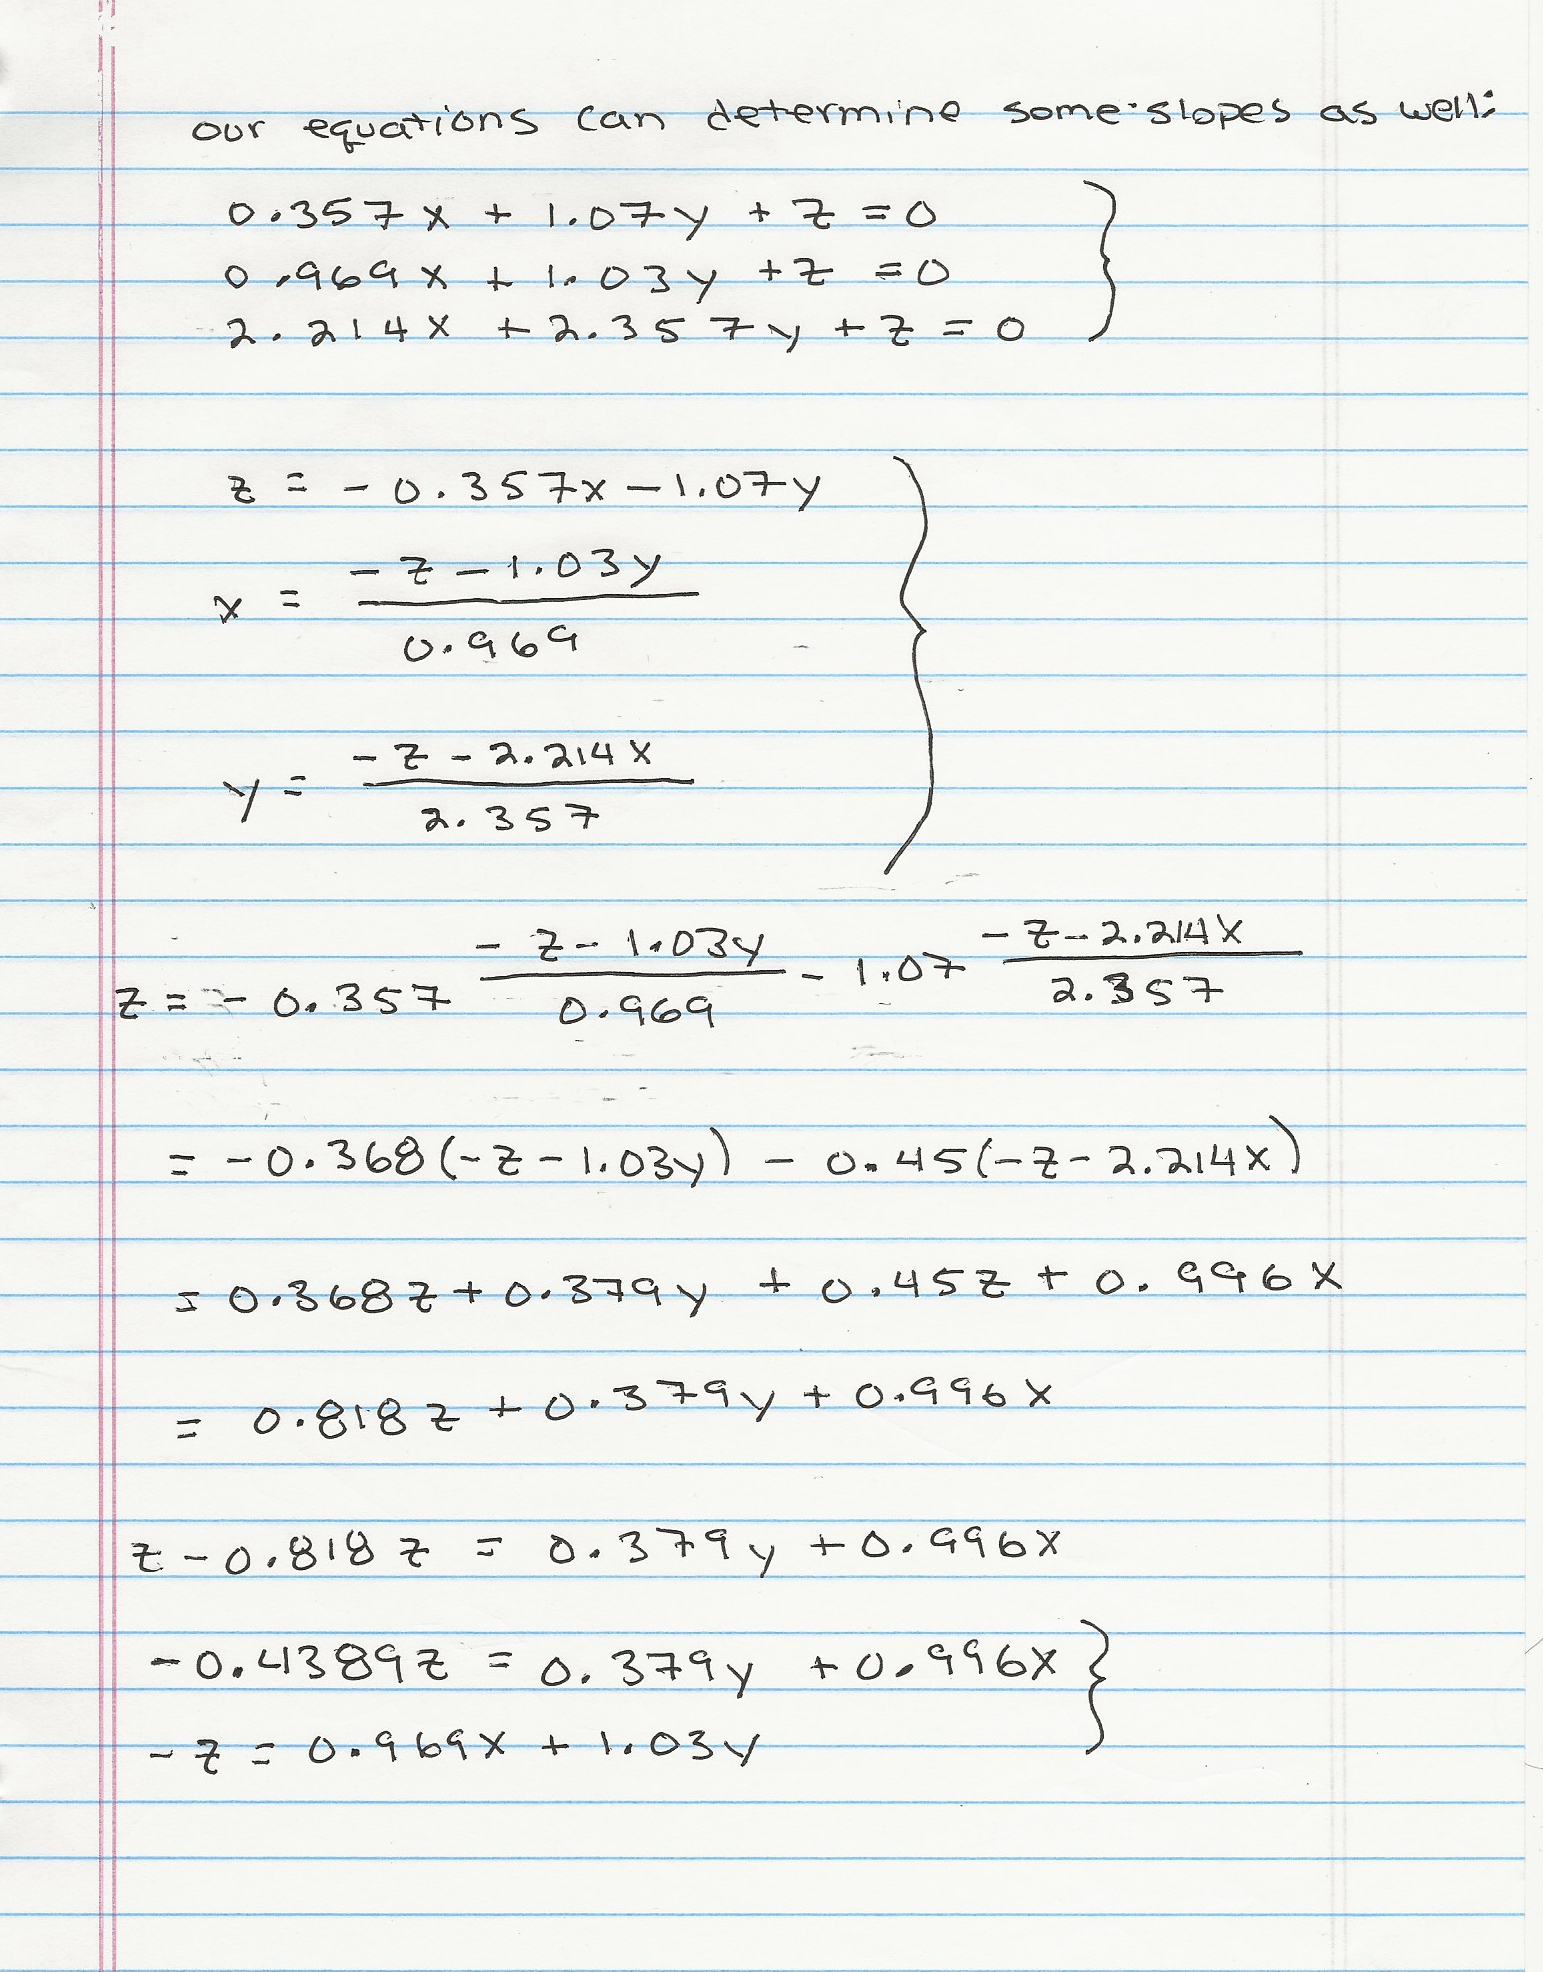 our equations can determine some slopes as well:
0.357x + 1.07y + z = 0
0.969x + 1.03y + z = 0
2.214x + 2.357y + z = 0
z = -0.357x - 1.07y
x = (-z - 1.03y) / 0.969
y = (-z - 2.214x) / 2.357
z = -0.357 (-z - 1.03y) / 0.969 - 1.07 (-z - 2.214x) / 2.357
= -0.368(-z - 1.03y) - 0.45(-z - 2.214x)
= 0.368z + 0.379y + 0.45z + 0.996x
= 0.818z + 0.379y + 0.996x
z - 0.818z = 0.379y + 0.996x
-0.4389z = 0.379y + 0.996x
-z = 0.969x + 1.03y